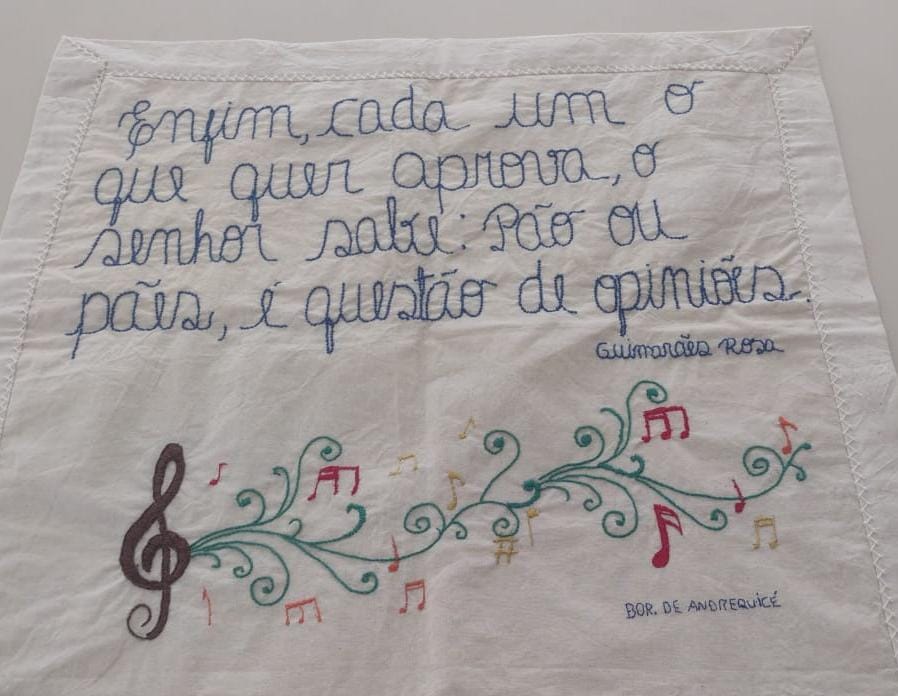 Enfim, cada um o
que quer aprova, o
senhor sabe: Pão ou
pães, é questão de opiniões.
Guimarães Rosa
BOR. DE ANDREQUICÉ